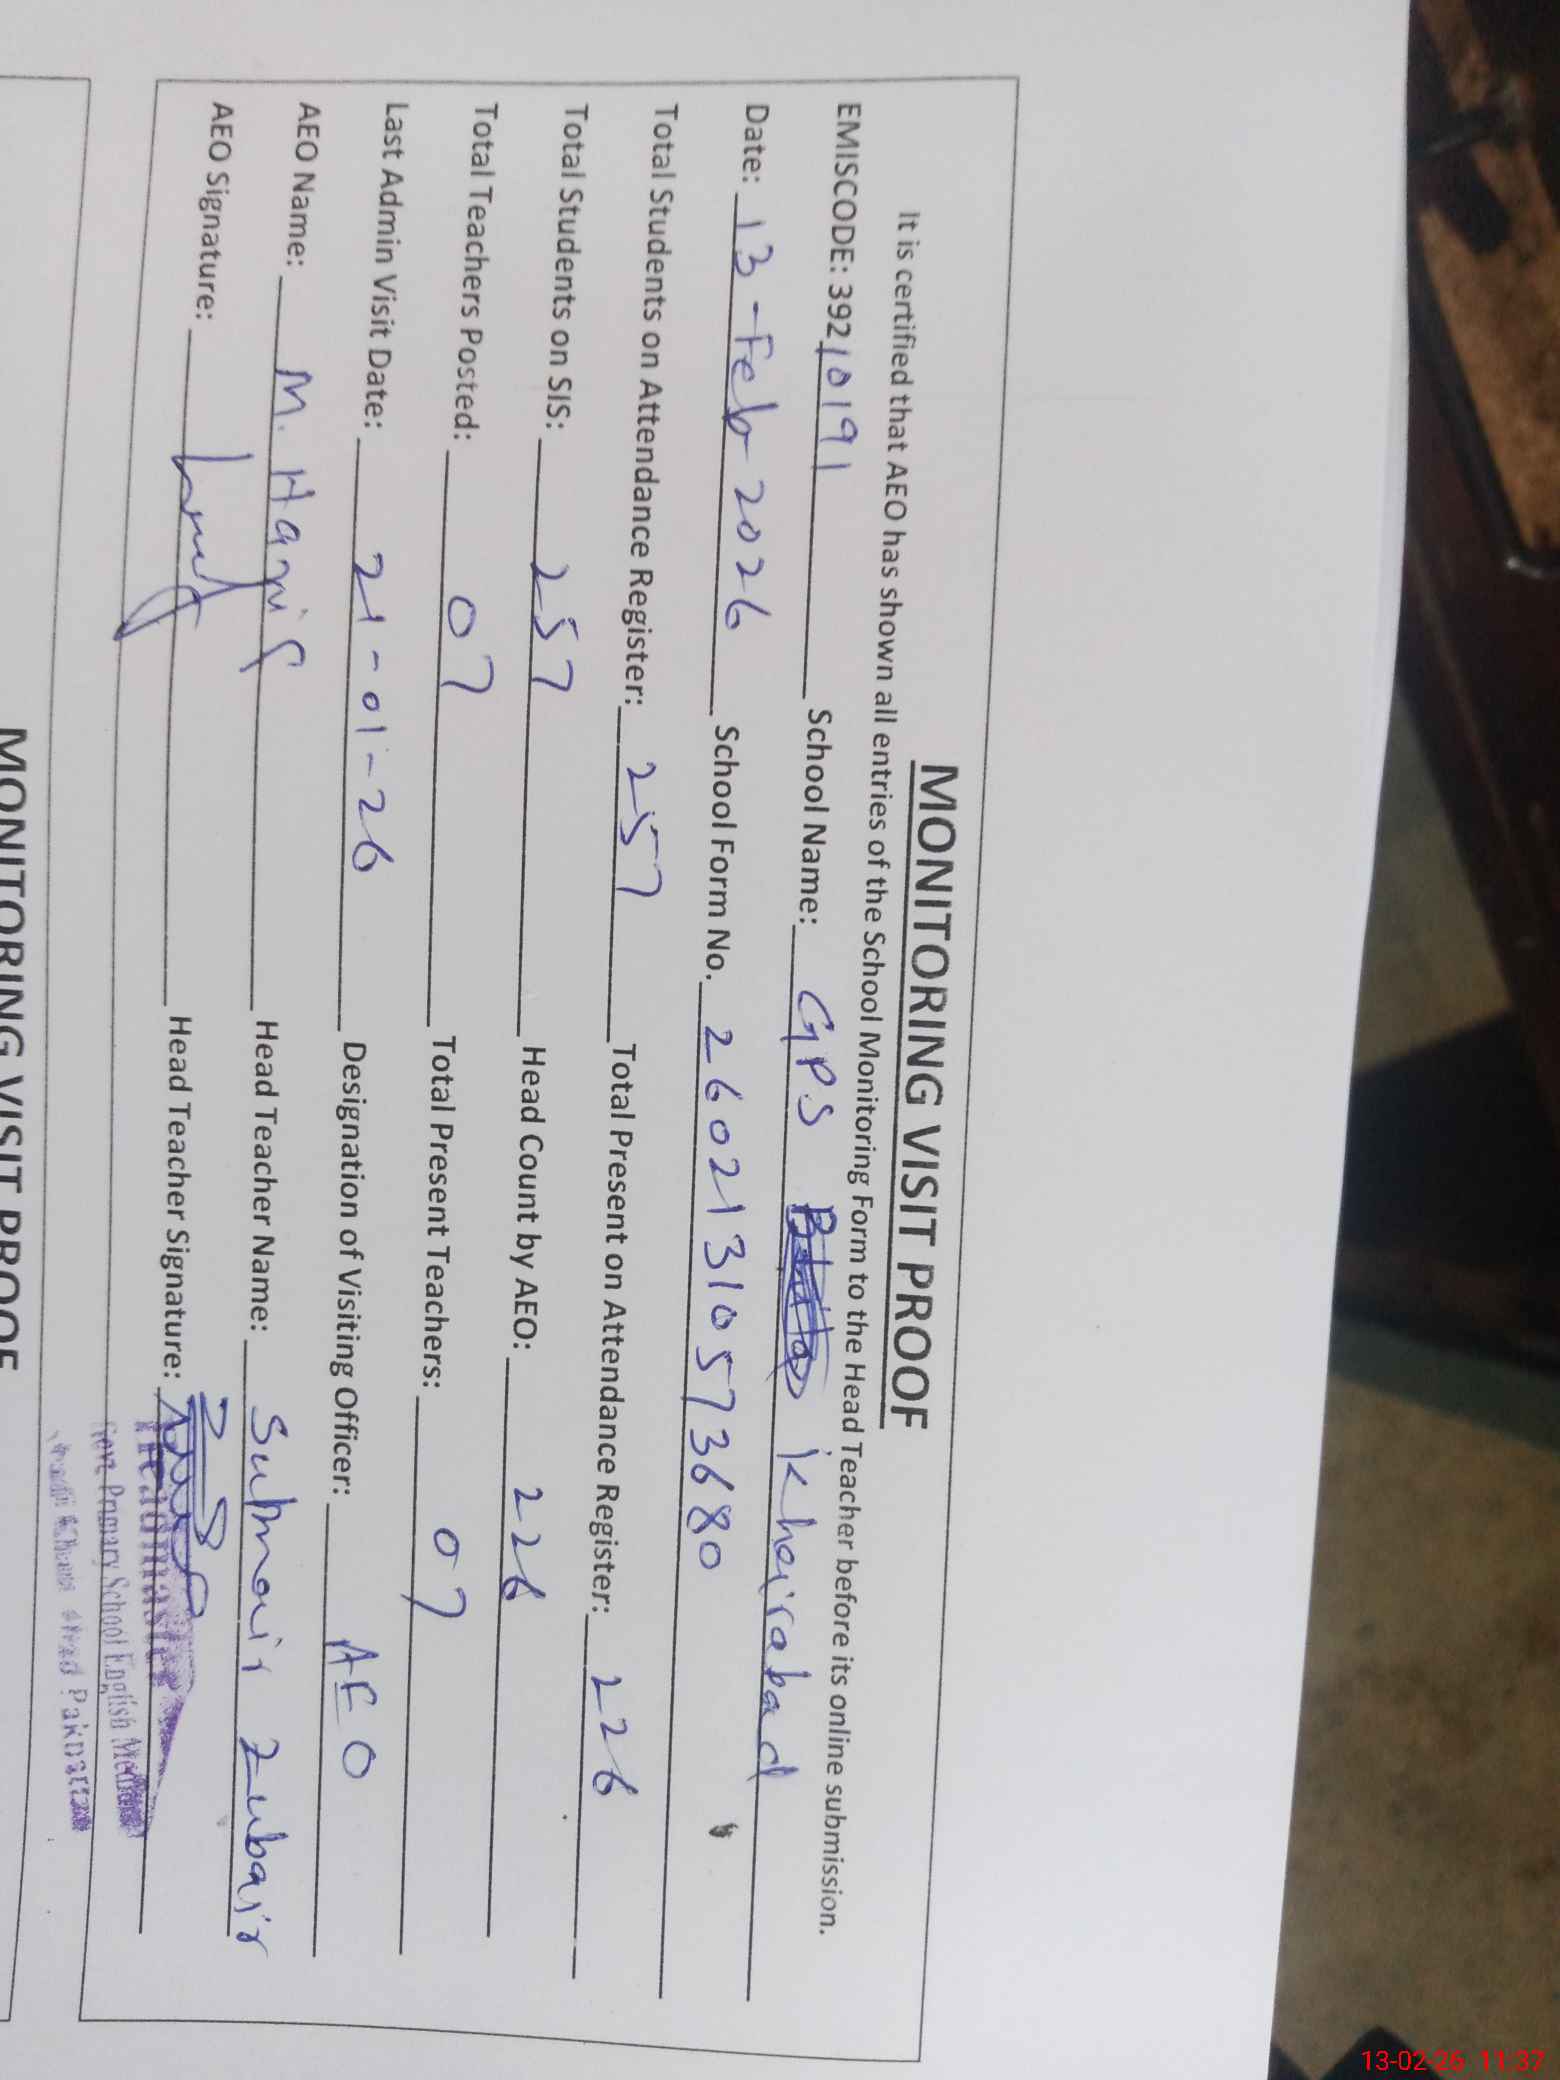 MONITORING VISIT PROOF
It is certified that AEO has shown all entries of the School Monitoring Form to the Head Teacher before its online submission.
EMISCODE: 39210191 School Name: GPS Khairabad
Date: 13-Feb 2026 School Form No. 26021310573680
Total Students on Attendance Register: 257 Total Present on Attendance Register: 226
Total Students on SIS: 257 Head Count by AEO: 226
Total Teachers Posted: 07 Total Present Teachers: 07
Last Admin Visit Date: 21-01-26 Designation of Visiting Officer: AEO
AEO Name: M. Hanif Head Teacher Name: Sulmair Zubair
AEO Signature: Head Teacher Signature:
Headmaster
Govt. Primary School English Medium
Pakpattan
MONITORING VISIT PROOF
13-02-26 11:37